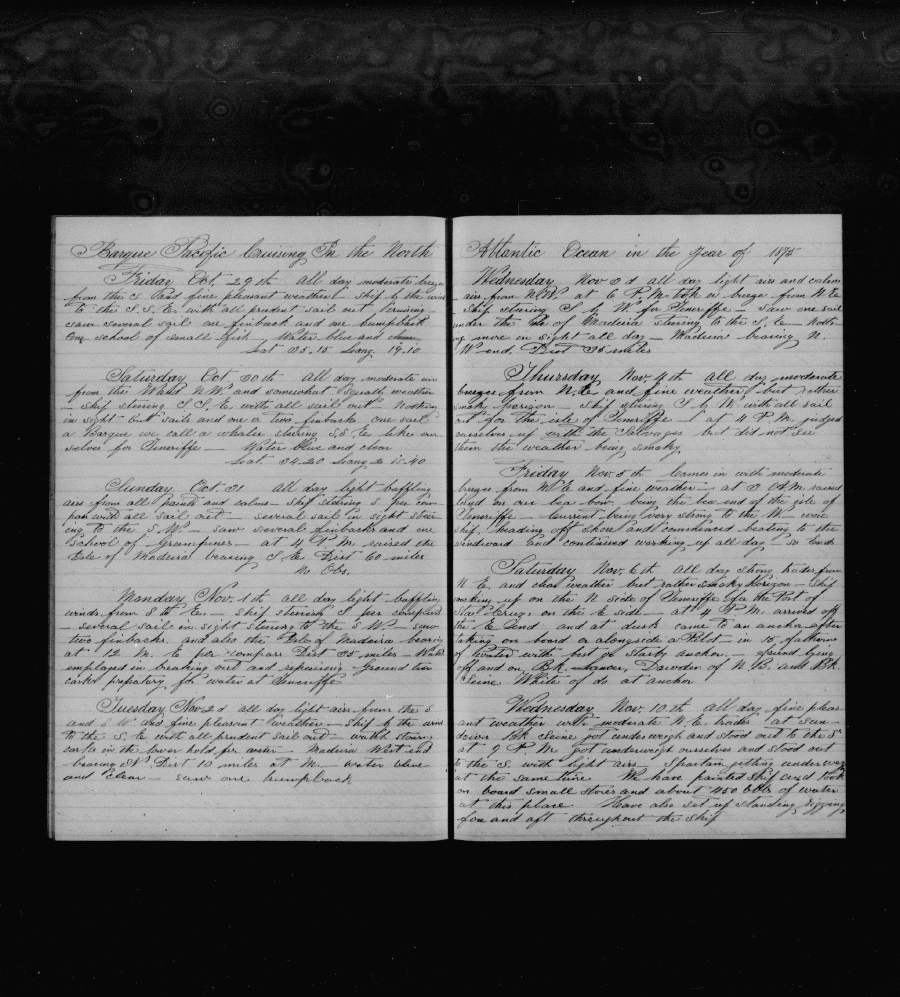 Barque Pacific Cruising In the North
Friday Oct. 29th All day moderate breeze
from the S and fine pleasant weather. Ship by the wind
to the S.S.E. with all prudent sail out Cruising
saw several sail one finback and one humpback
One school of small fish. Water blue and clear
Lat 35.15 Long. 19.10
Saturday Oct 30th All day moderate
from the W.N.W. and somewhat squally weather
Ship steering S.S.E. with all sail out Nothing
in sight but sails and one or two finbacks one sail
a Barque we call a whaler steering S.S.E. like our
selves for Teneriffe Water blue and clear
Lat. 34.20 Long. 18.40
Sunday Oct. 31 All day light baffling
airs from all points and calms ship steering S. per com
pass with all sail out several sail in sight steer
ing to the S.W. saw several finbacks and one
School of Grampuses at 4 P.M. raised the
Isle of Madeira bearing S.E. Dist 60 miles
No Obs.
Monday Nov. 1st all day light baffling
winds from S to E. ship steering S per compass
several sail in sight steering to the S.W. saw
two finbacks, and also the Isle of Madeira bearing
at 12 M. E per compass Dist 35 miles
employed in breaking out and repairing ground tier
casks prepatory for water at Teneriffe
Tuesday Nov 2d all day light airs from the S
and S W and fine pleasant weather Ship by the wind
to the S.E. with all prudent sail out watch stowing
casks in the lower hold for water Madeira West end
bearing Dist 10 miles at M. water blue
and clear saw one humpback
Atlantic Ocean in the Year of 1875
Wednesday Nov 3d all day light airs and calms
air from N.W. at 6 P.M. took a breeze from N.E.
Ship steering S by W. for Teneriffe Saw one sail
under the Isle of Madeira steering to the S.E. Noth
ing more in sight all day Madeira bearing N.
W end. Dist 35 miles
Thursday Nov. 4th all day moderate
breeze from N.E. and fine weather but rather
smoky horizon ship steering S by W with all sail
out for the isle of Teneriffe at 4 P.M. judged
ourselves up with the Salvages but did not see
them the weather being smoky
Friday Nov. 5th Comes in with moderate
breeze from N E and fine weather at 3 A.M. raised
land on our lee bow being the lee end of the isle of
Teneriffe Current being very strong to the W. wore
ship heading off shore and commenced beating to the
windward and continued working up all day so Ends
Saturday Nov. 6th All day strong trades from
N E. and clear weather but rather smoky horizon Ship
working up on the N side of Teneriffe for the Port of
Sta Cruz on the E side at 4 P.M. arrived off
the E End and at dusk came to an anchor after
taking on board or alongside a Pilot in 15 fathoms
of water with best or Starb anchor. found lying
off and on Bk. Lancer, Dowden of N B and Bk
Seine White of do at anchor
Wednesday Nov. 10th all day fine pleas
ant weather with moderate N.E. trades at sun
down Bk Seine got underweigh and stood out to the S
at 9 P.M. got underweigh ourselves and stood out
to the S. with light airs Spartan getting underway
at the same time We have painted ship and took
on board small stores and about 450 bbls of water
at this place Have also set up standing rigging
fore and aft throughout the ship